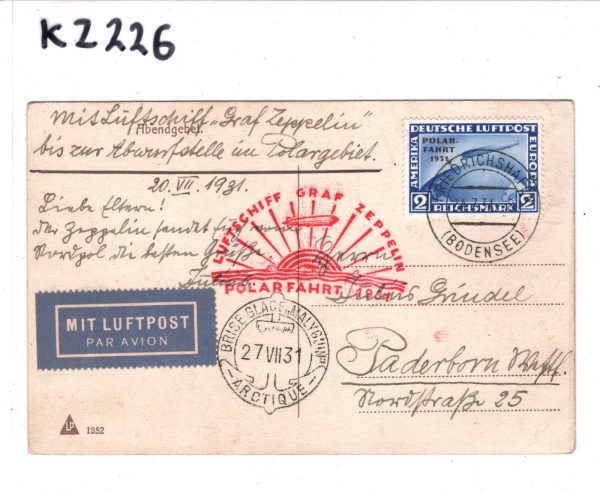 KZ226
Mit Luftschiff „Graf Zeppelin"
Abendgebet.
bis zur Abwurfstelle im Polargebiet.
20. VII. 1931.
Liebe Eltern!
Der Zeppelin sendet
Nordpol die besten Grüße.
DEUTSCHE LUFTPOST
AMERIKA
EUROPA
POLAR-
FAHRT
1931
2 REICHSMARK 2
FRIEDRICHSHAFEN
(BODENSEE)
LUFTSCHIFF GRAF ZEPPELIN
POLARFAHRT 1931
MIT LUFTPOST
PAR AVION
BRISE GLACE „MALYGUINE"
27 VII 31
ARCTIQUE
Herrn
Gründel
Paderborn Westf.
Nordstraße 25
LP
1252